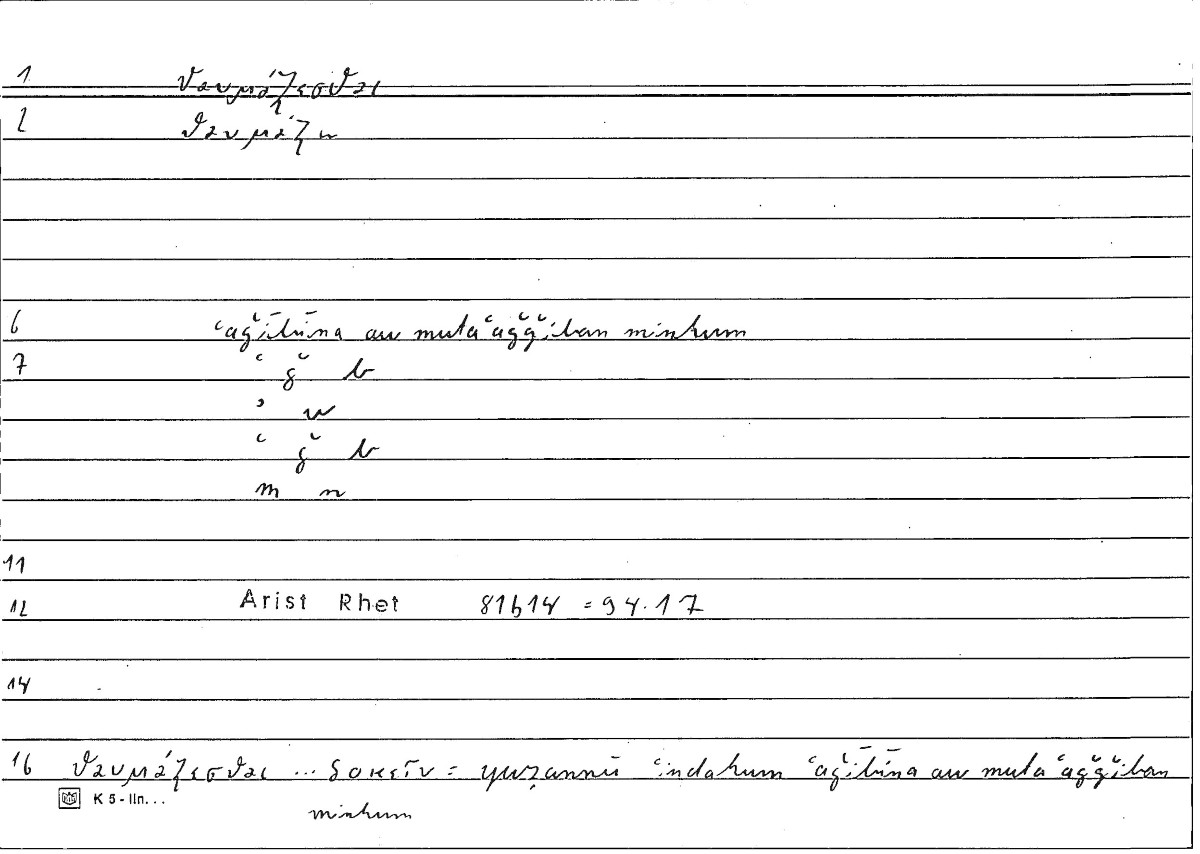 1 θαυμάζεσθαι
2 θαυμάζω
6 ʿaǧībīna au mutaʿaǧǧiban minhum
7 ʿ ǧ b
ʾ w
ʿ ǧ b
m n
11
12 Arist Rhet 81b14 = 94.17
14
16 θαυμάζεσθαι ... δοκεῖν = yuẓannū ʿindakum ʿaǧībīna au mutaʿaǧǧiban
K 5 - lin...
minhum